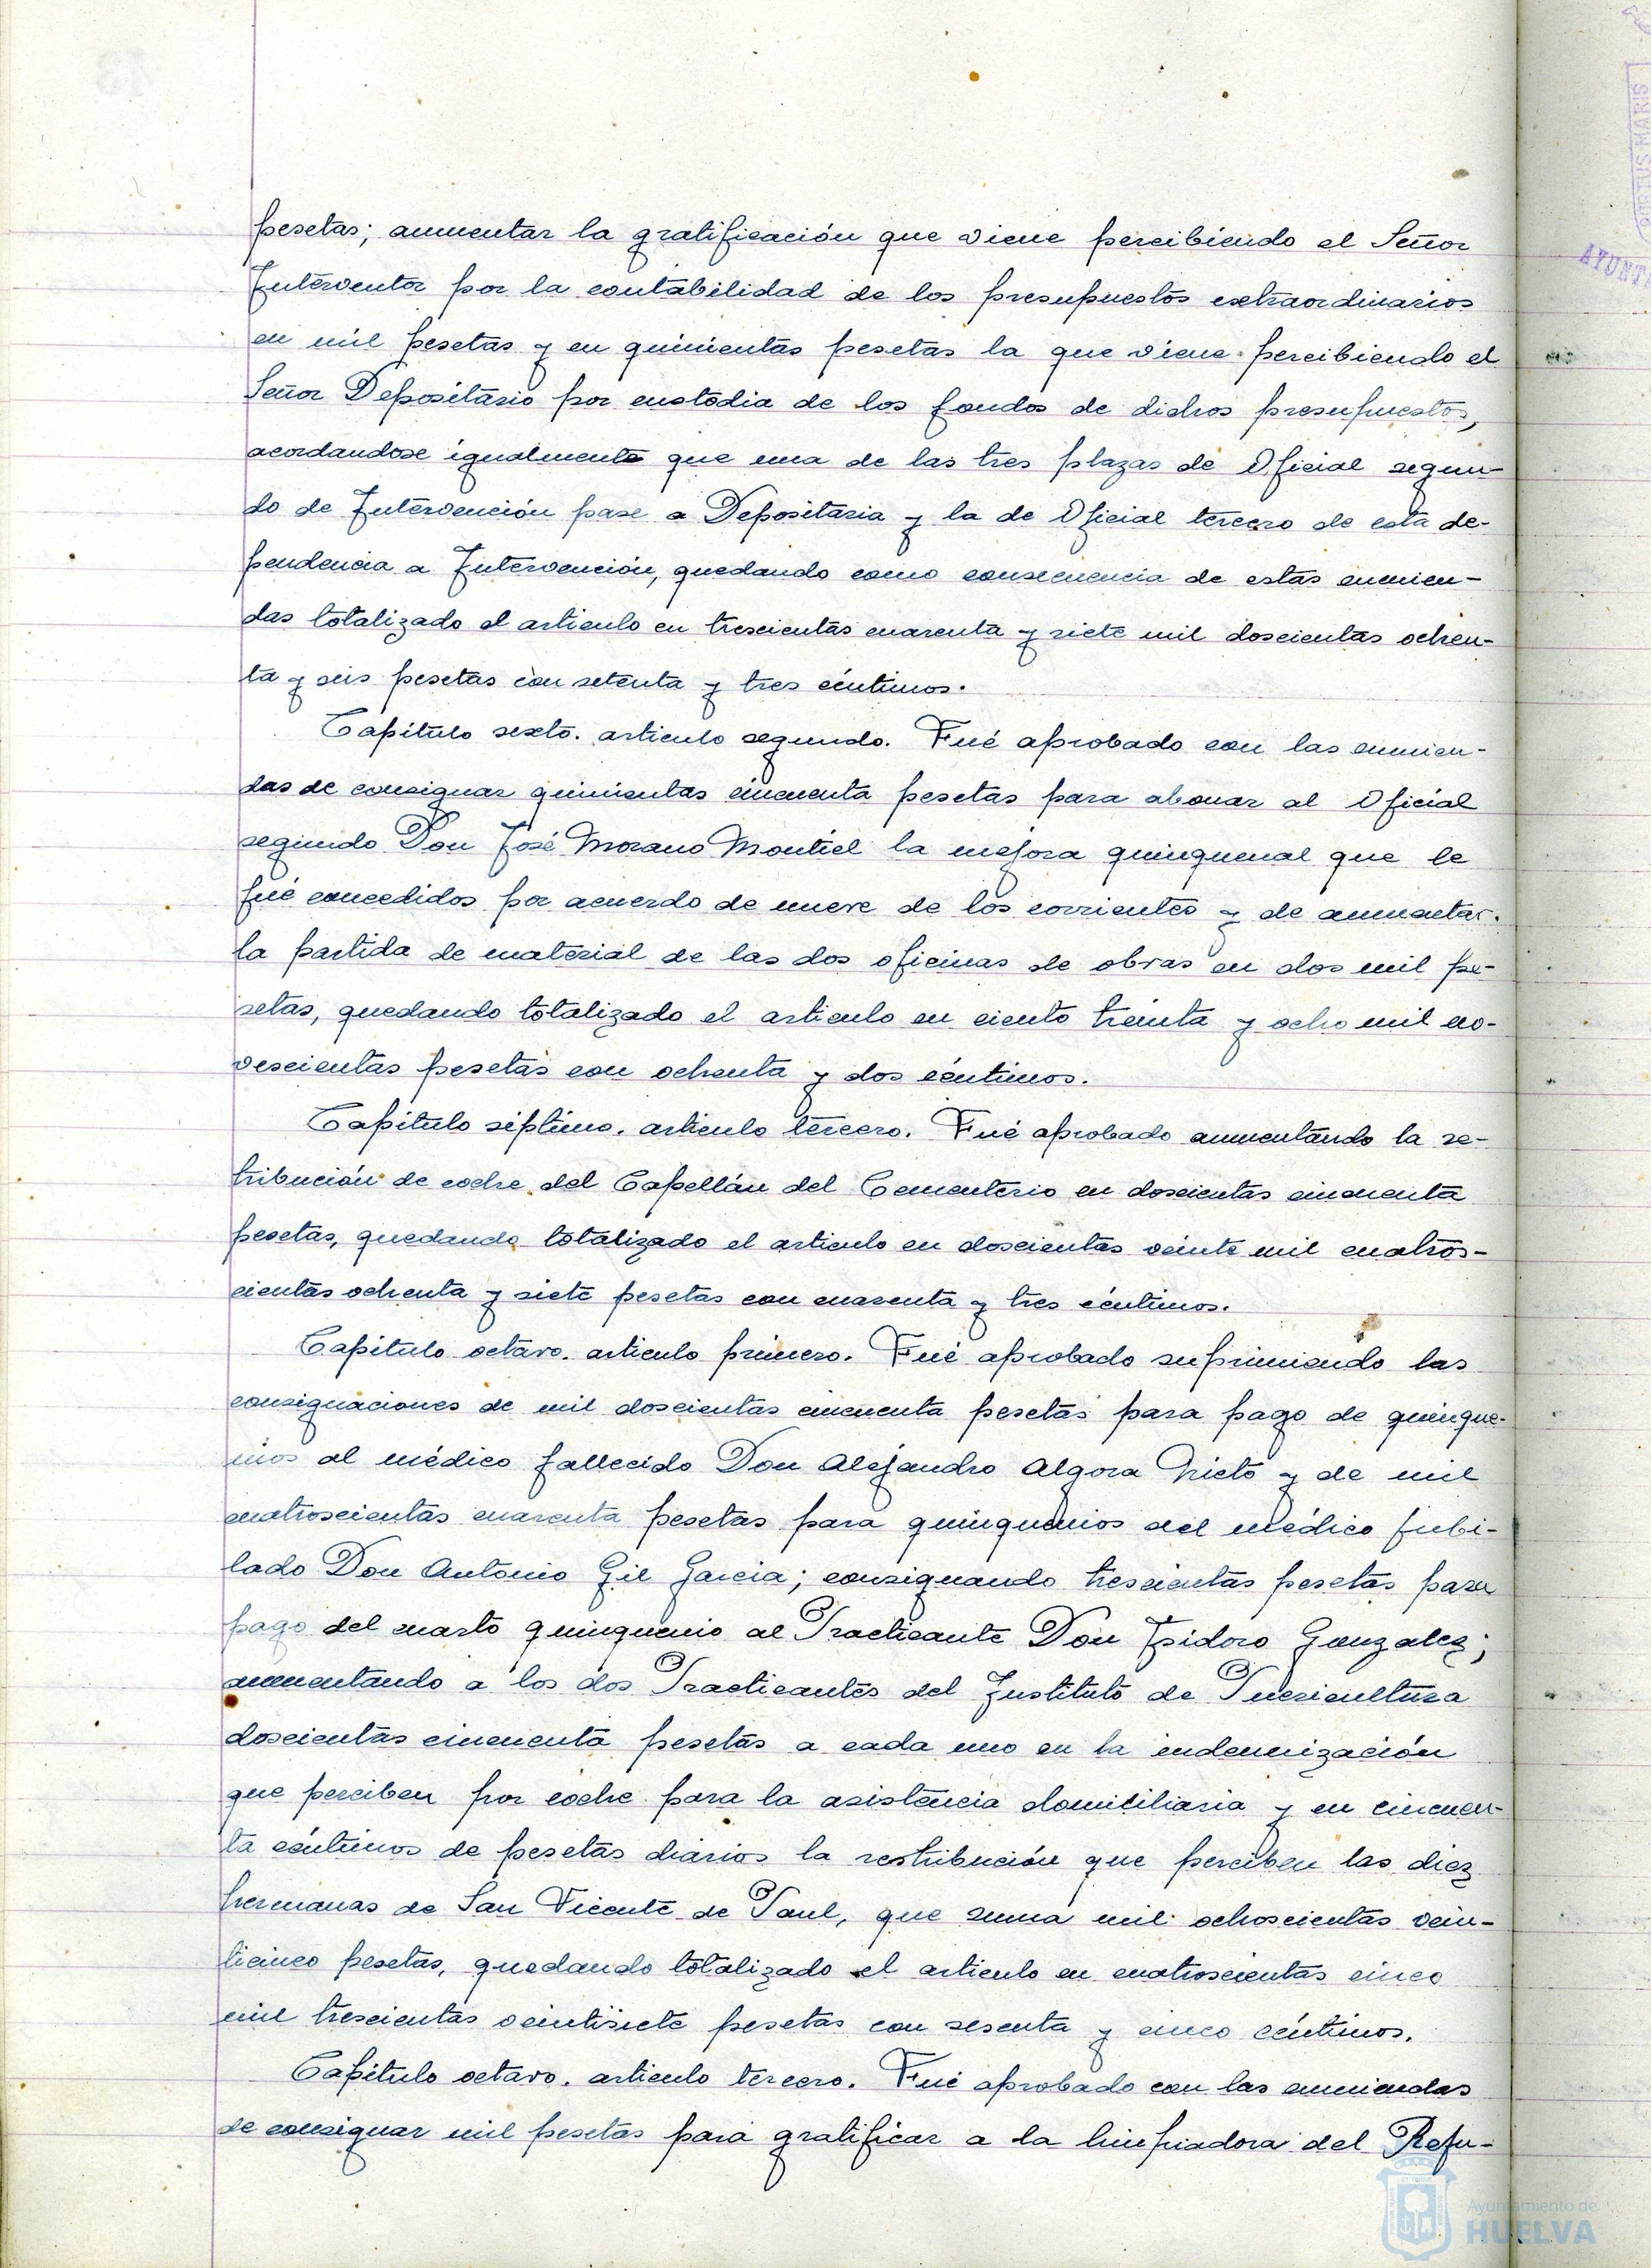 pesetas; aumentar la gratificación que viene percibiendo el Señor
Interventor por la contabilidad de los presupuestos extraordinarios
en mil pesetas y en quinientas pesetas la que viene percibiendo el
Señor Depositario por custodia de los fondos de dichos presupuestos,
acordandose igualmente que una de las tres plazas de Oficial segun-
do de Intervención pase a Depositaria y la de Oficial tercero de esta de-
pendencia a Intervención, quedando como consecuencia de estas enmien-
das totalizado el articulo en trescientas cuarenta y siete mil doscientas ochen-
ta y seis pesetas con setenta y tres céntimos.
Capítulo sexto. articulo segundo. Fué aprobado con las enmien-
das de consignar quinientas cincuenta pesetas para abonar al Oficial
segundo Don José Morano Montiel la mejora quinquenal que le
fué concedidos por acuerdo de nueve de los corrientes y de aumentar.
la partida de material de las dos oficinas de obras en dos mil pe-
setas, quedando totalizado el articulo en ciento treinta y ocho mil no-
vescientas pesetas con ochenta y dos céntimos.
Capítulo séptimo. articulo tercero. Fué aprobado aumentando la re-
tribución de coche del Capellán del Cementerio en doscientas cincuenta
pesetas, quedando totalizado el articulo en doscientas veinte mil cuatros-
cientas ochenta y siete pesetas con cuarenta y tres céntimos.
Capítulo octavo. articulo primero. Fué aprobado suprimiendo las
consignaciones de mil doscientas cincuenta pesetas para pago de quinque-
nios al médico fallecido Don Alejandro Algora Nieto y de mil
cuatroscientas cuarenta pesetas para quinquenios del médico jubi-
lado Don Antonio Gil Garcia; consignando trescientas pesetas para
pago del cuarto quinquenio al Practicante Don Isidoro Gonzalez;
aumentando a los dos Practicantes del Instituto de Puericultura
doscientas cincuenta pesetas a cada uno en la indemnización
que perciben por coche para la asistencia domiciliaria y en cincuen-
ta céntimos de pesetas diarios la restribución que perciben las diez
hermanas de San Vicente de Paul, que suma mil ochoscientas vein-
ticinco pesetas, quedando totalizado el articulo en cuatroscientas cinco
mil trescientas veintisiete pesetas con sesenta y cinco céntimos.
Capítulo octavo. articulo tercero. Fué aprobado con las enmiendas
de consignar mil pesetas para gratificar a la limpiadora del Refu-
Ayuntamiento de
HUELVA